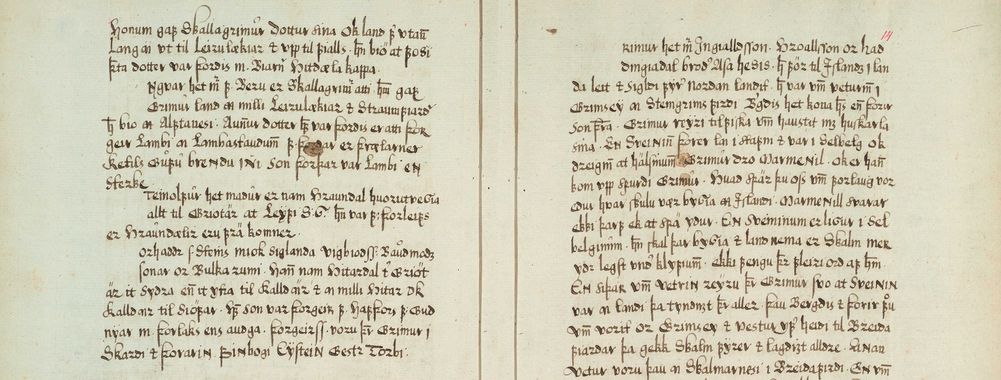 Honum gaf Skallagrimur dottur sina Ok land þ utan
Langar ut til Leirulækiar & upp til fialls. hn bio at fossi
fra dotter var þordis m. Biarnar hitdæla kappa.
Ngvar het mr f. Beru er Skallagrimr atti. hm gaf
Grimur land a milli Leirulækiar & Straumfiarð
h bio a Alftanesi. Annur dotter hs var þordis er atti þor
geir lambi a Lambastaudum f þordar er þrælarner
ketils Gufu brendu inni son þordar var Lambi en
sterke
Teinolfur het madur er nam Hraundal huorutvegia
allt til Griotár at Leyfi S.G. hn var f þorleifs
er Hraundæler eru frá komner.
orhaddr s steins miok siglanda vigbiods s. Baudmods
sonar or Bulka rumi. Hann nam Hitardal til Griot
ár it sydra en it ytra til kalldár & a milli Hitar Ok
kalldar til siofar. hs son var þorgeir f Haffors f Gud
nyar m. þorlaks ens audga. þorgeirs s. voru þr Grimur i
Skardi & þorarin Finbogi Eystein Gestr Torbi.
14
Rimur het m Ingialldsson. Hroallsson or had
dingiadal brod Asa hesis. h fór til Islands i lan
da leit & sigldi fyr nordan landit. h var um veturin i
Grimsey a Steingrims firdi. Bgdis het kona hs en þorer
son þra. Grimur reyri til fiska um haustit mz huskarla
sina. En Sveinin þorer lan i stafni & var i selbelg Ok
dreigin at hálsinum Grimur dro Marmenil. Ok er han
kom upp spurdi Grimur. Huad spár þu oss um forlaug vor
Odur hvar skulu vær bygia a Islandi. Marmenill svarar
ekki þarf ek at spá ydur. En sveininum er ligiur i sel
belginum. hn skal þar bygia & land nema er Skalm mer
ydr legst undr klyfium. ekki fengu þr fleiri ord af hm.
En sidar um vetrin reyru þr Grimur svo at sveinin
var a landi þa tyndust þr aller. þau Bergdis & þorir fou
um vorit or Grimsey & Vestur yfr heidi til Breida
fiardar þa gekk Skalm fyrer & lagdizt alldre. Anan
vetur voru þau a Skalmarnesi i Breidafirdi. En um